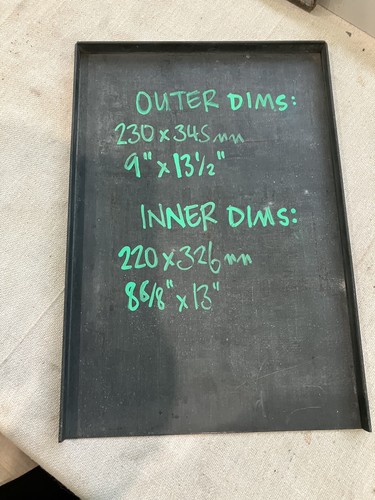 OUTER DIMS:
230 x 345 mm
9" x 13½"
INNER DIMS:
220 x 326 mm
8 6/8" x 13"